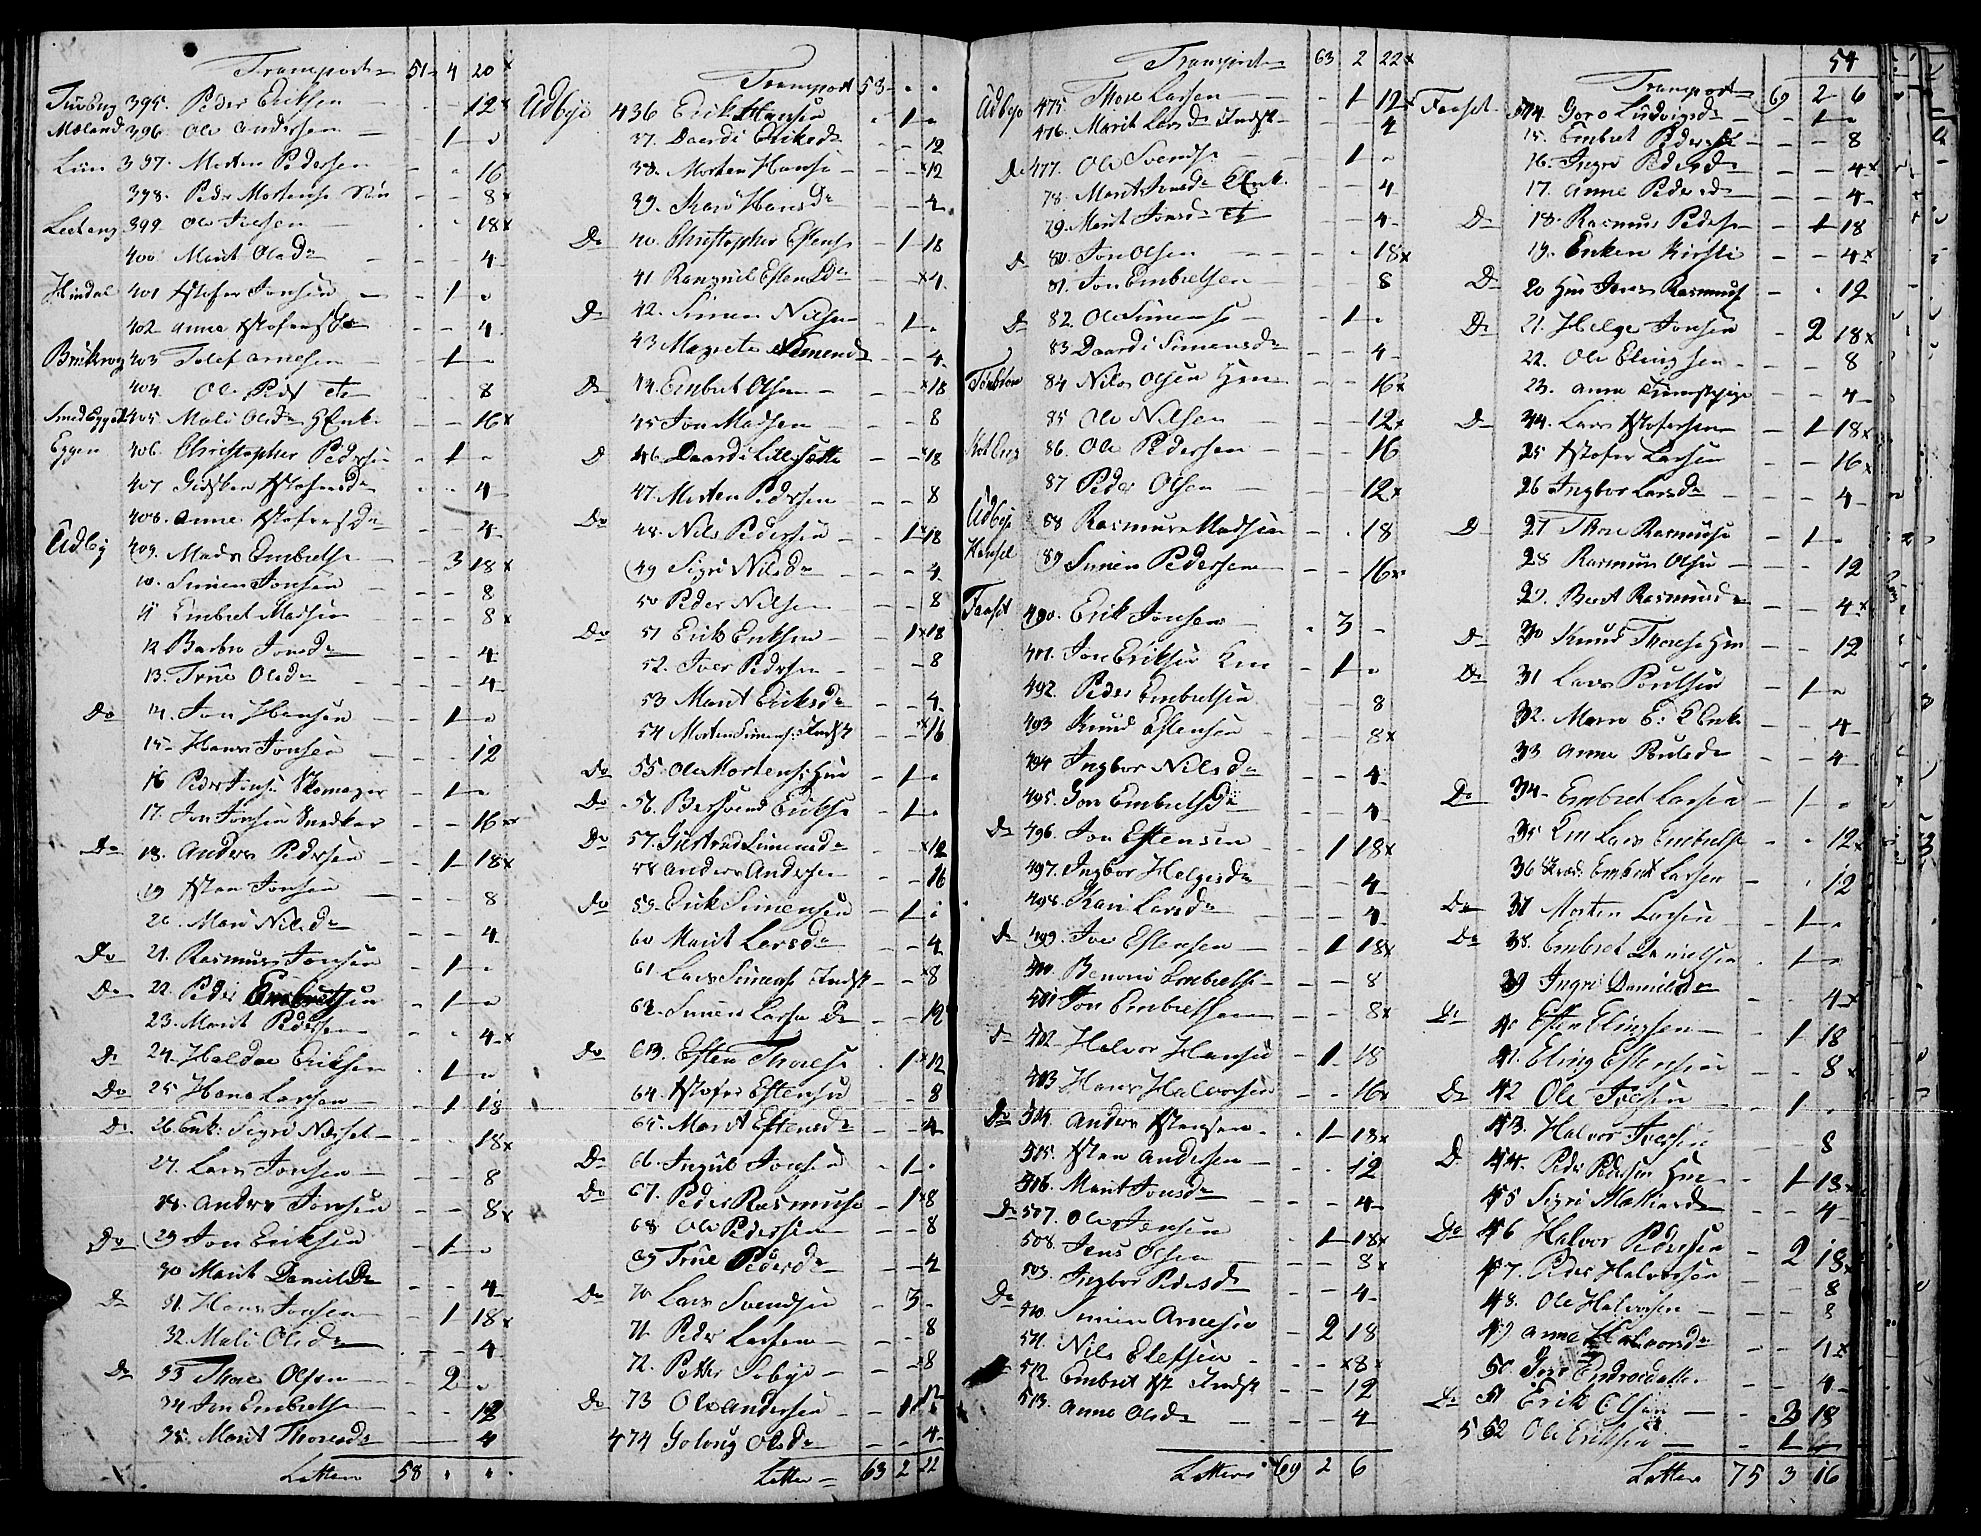 Transport 51 4 20
395. Peder Eriksen 12
Mæland 396 Ole Andersen 1
397. Morten Pedersen 16
398. Peder Mortense 8
399 Ole Iversen 18
400 Marit Olsdr 4
Hindal 401 Xstofer Jonsen 1
402 Anne 4
403 Tolef Arnesen 1
404. Ole Peds 8
405. Mali Olsdr 16
Eggen 406. Christopher Pedersen 1
407 4
408. Anne Xstofersdr 4
Udby 409. Mads Embretse 3 18
10. Simen Jonsen 8
11 Embret Madsen 8
12 Barbro Jonsdr 4
13. Trine Olsdr 4
Do 14. Jon Hansen 1
15 Hans Jonsen 12
16 Peder Jonse Skomager 1
17. Jon Jonsen Snedker 16
Do 18. Anders Pedersen 1 18
19 Xsten Jonsen 8
20. Mari Nilsdr 4
Do 21. Rasmus Jonsen 1
Do 22. Peder Embretsen 1
23. Marit Pedersen 4
Do 24. Haldoe Eriksen 1
Do 25 Hans Larsen 1 18
Do 26 Enk: Sigri 18
27. Lars Jonsen 8
28. Anders Jonsen 8
Do 29 Jon Eriksen 1
30 Marit Danielsdr 4
Do 31. Hans Jonsen 1 18
32. Mali Olsdr 4
Do 33 Thore Olsen 2
34 Jon Embretsen 12
35. Marit Thoresdr 4
Latten 58
Transport 58
Udbye 436 Erik Hansen 1
37. Daardi Eriksdr 12
38. Morten Hanse 12
39. Mari Hansdr 4
Do 40. Christopher Estense 1 18
41 Rangnil Estensdr 4
Do 42. Simen Nilsen 1
43 Magrete Simensdr 4
Do 44. Embret Olsen 18
45 Jon Madsen 8
D 46 Daardi 18
47. Morten Pedersen 8
Do 48. Nils Pedersen 1 18
49 Sigri Nilsdr 4
50 Peder Nilsen 8
Do 51 Erik Eriksen 1 18
52. Iver Pedersen 8
53 Marit Eriksdr 4
54 Morten Simense Indst 16
Do 55. Ole Mortense Hm 1
Do 56. Bersvend Erikse 1
Do 57. Giertrud Simensdr 12
58 Anders Andersen 16
Do 59. Erik Simensen 1
60 Marit Larsdr 4
61. Lars Simense Indst 8
62. Simen Larsen 12
Do 63. Esten Thorese 1 12
64. Xstofer Estensen 8
65. Marit Estensdr 4
Do 66. Ingul Jonsen 1
Do 67. Peder Rasmuse 1 8
68 Ole Pedersen 8
69 Trine Pedersdr 4
Do 70 Lars Svendsen 3
71. Peder Larsen 8
72. Petter Sobye 8
Do 73 Ole Andersen 1
474 Goloug Olsdr 4
Latter 63 2 22
Transport 63 2 22
Udbye 475 Thore Larsen 1 12
476. Marit Larsdr Indst 4
Do 477. Ole Svendse 1
78. Marit 4
79. Marit Jonsdr 4
Do 80. Jon Olsen 18
81. Jon Embretsen 8
Do 82. Ole Simense 1
83 Daardi Simensdr 4
84 Nils Olsen Hm 16
85 Ole Nilsen 12
86. Ole Pedersen 16
87 Peder Olsen 12
Udbye 88 Rasmus Madsen 18
89 Simen Pedersen 16
Faaset 490. Erik Jonsen 3
491. Jon Eriksen 1
492. Peder Embretsen 8
493 Knud Estensen 8
494 Ingbor Nilsdr 4
495. Gori Embretsdr 4
Do 496. Jon Estensen 1 18
497. Ingbor Helgesdr 4
498. Kari Larsdr 4
Do 499. Iver Estensen 1 18
500 Benoni Embretse 8
501 Jon Embretsen 8
Do 502. Halvor Hansen 1 18
503 Hans Halvorsen 16
Do 504. Anders Xstensen 1 18
505. Xsten Andersen 12
506. Marit Jonsdr 4
Do 507. Ole Jensen 1 18
508. Jens Olsen 8
509. Ingbor Pedersdr 4
Do 510 Simen Arnesen 2 18
511. Nils Elefsen 8
512 Embret Xst Indst 12
513. Anne Olsdr 4
Latters 69 2 6
54
Transport 69 2 6
Faaset 514. Goro Ludvigsdr 1
15. Embret Pedersen 8
16. Ingri Pedersdr 4
17. Anne Pedersdr 4
Do 18. Rasmus Pedersen 1 18
19. Enken Kirsti 4
Do 20 Hm Jens Rasmuse 12
Do 21. Helge Jonsen 2 18
22. Ole Elingsen 8
23. Anne 4
Do 24. Lars Xstofersen 1 18
25 Xstofer Larsen 16
26 Ingbor Larsdr 4
D 27 Thore Rasmuse 1
28 Rasmus Olsen 12
29. Berit Rasmusdr 4
Do 30 Knud Thorese Hm 12
Do 31 Lars Poulsen 1
32. Marie E: 4
33 Anne Poulsdr 4
Do 34 Embret Larsen 1
35 Lars Embretse 12
36 Embret Larsen 12
Do 37 Morten Larsen 1
Do 38. Embret Danielsen 1
39 Ingri Danielsdr 4
Do 40 Esten Elingsen 1 18
41. Eling Estensen 8
Do 42 Ole Iversen 1
43. Halvor Iversen 8
D 44. Peder Pedersen Hm 1 18
45 Sigri 4
Do 46 Halvor Pedersen 2 18
47. Peder Halvorsen 8
48. Ole Halvorsen 8
49 Anne Halvorsdr 4
50 4
Do 51 Erik Olsen 3 18
552 Ole Eriksen 1
Latter 75 3 16